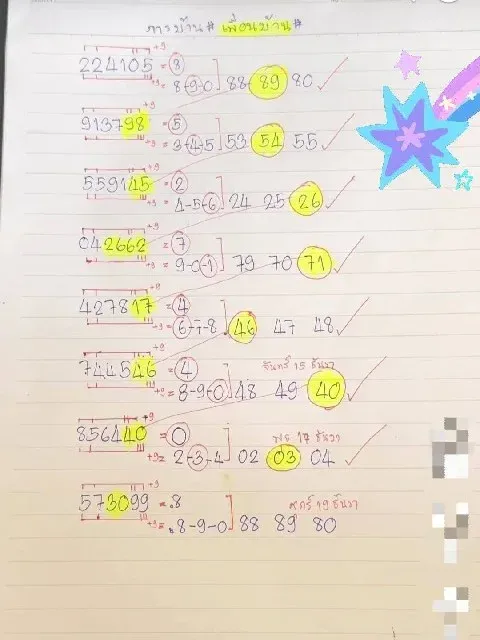 การบ้าน # เพื่อนบ้าน #
+9
224105 = 8
= 8-9-0 88 89 80
+9
913798 = 5
+9 = 3-4-5 53 54 55
+9
559145 = 2
+9 = 4-5-6 24 25 26
+9
042662 = 7
+9 = 9-0-1 79 70 71
+9
427817 = 4
+9 = 6-7-8 46 47 48
+9
744546 = 4 จันทร์ 15 ธันวา
+9 = 8-9-0 48 49 40
+9
856440 = 0 พุธ 17 ธันวา
+9 = 2-3-4 02 03 04
+9
573099 = 8 ศุกร์ 19 ธันวา
+9 = 8-9-0 88 89 80